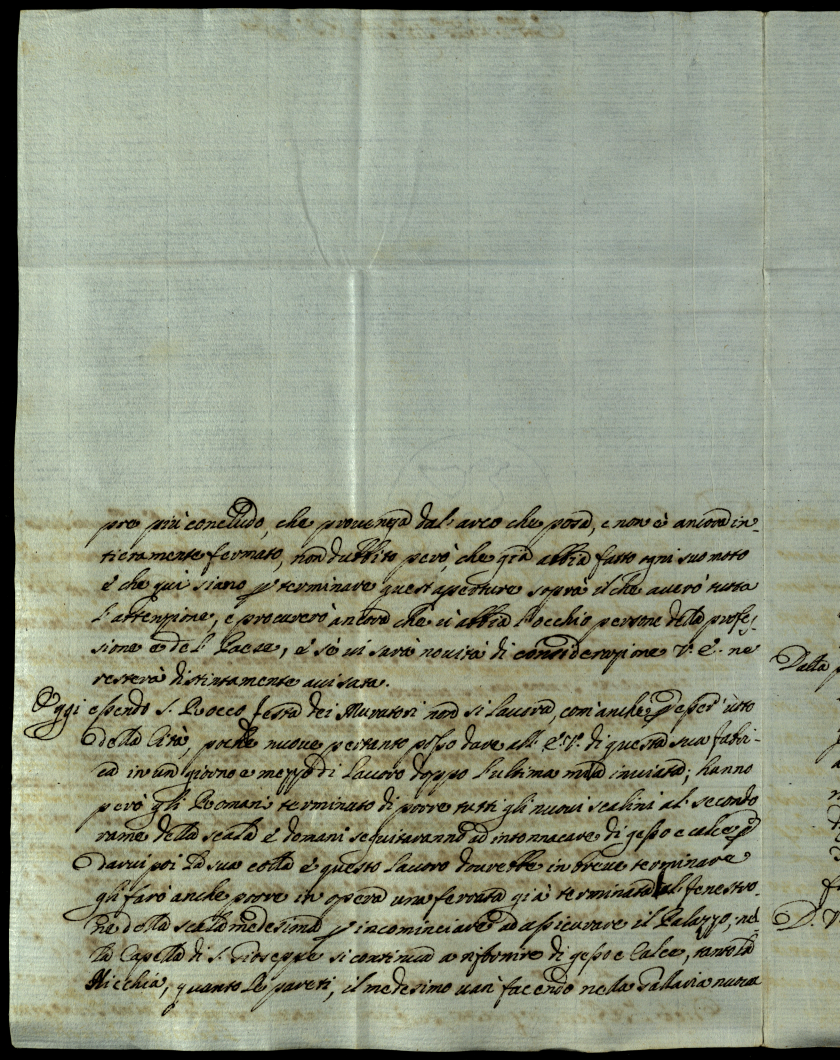 pre più concludo, che provenga dal' arco che posa, e non è ancora in-
tieramente fermato, non dubbito però, che già abbia fatto ogni suo moto
è che qui siano p terminare quest'aperture sopra il che averò tutta
l'attenzione, e procurerò ancora che vi abbia l'occhio persone della profes-
sione e del Paese, è se vi sarà novità di considerazione V. E. ne
resterà distintamente avisata.
Oggi essendo S. Rocco festa dei Muratori non si lavora, com'anche p esser
della Cità, poche nuove pertanto posso dare all' E. V. di questa sua fabri-
ca in un giorno e mezzo di lavoro doppo l'ultima mia inviata; hanno
però gli Romani terminato di porre tutti gli nuovi scalini al secondo
rame della scala è domani seguitaranno ad intonnacare di gesso e calce p
darvi poi la sua colla è questo lavoro dourebbe in breve terminare
gli farò anche porre in opera una ferrata già terminata al fenestro-
ne della scala medesima p incominciare ad assicurare il Palazzo, nel
la Capella di S. Giuseppe si continua a rifornire di gesso e calce, tanto la
Nicchia, quanto le pareti, il medesimo van' facendo nella Gallaria nuova
Dalla
D. V